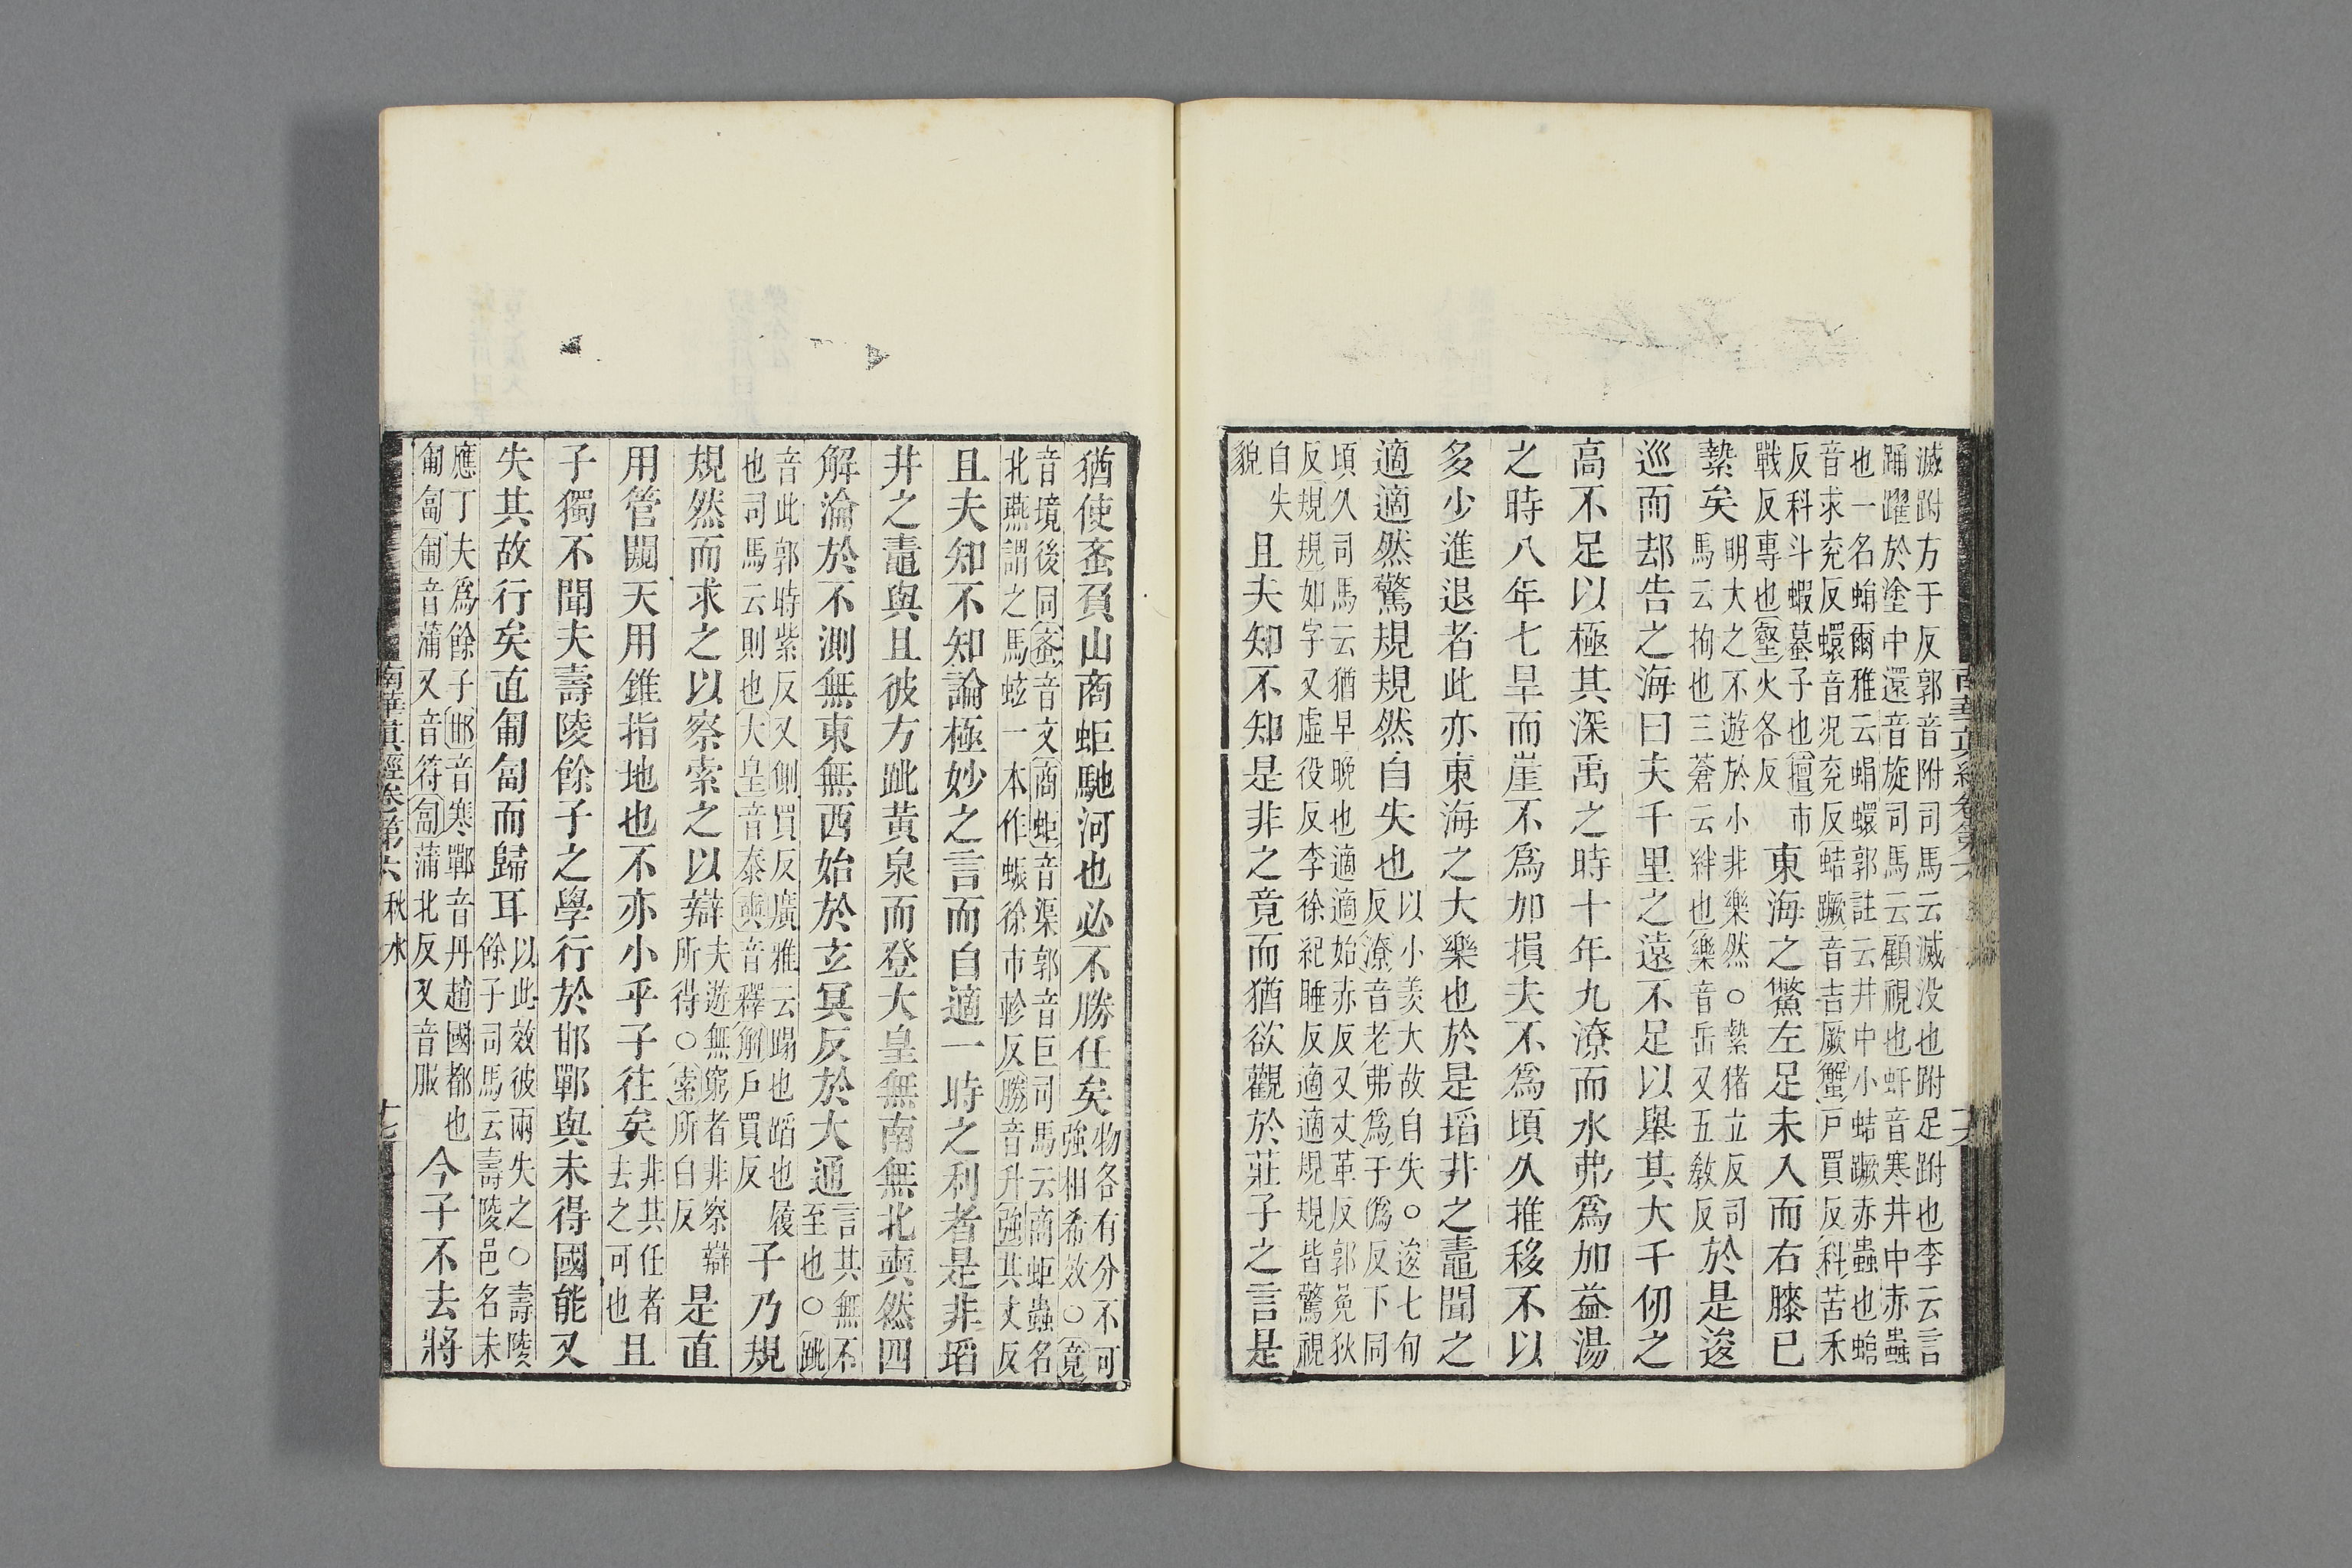 滅跗方于反郭音附司馬云滅没也跗足跗也李云言
踊躍於塗中還音旋司馬云顧視也虷音寒井中赤蟲
也一名蜎爾雅云蜎蠉郭註云井中小蛣蟩赤蟲也蜎
音求兖反蠉音況兖反蛣蟩音吉厥蟹戶買反科苦禾
反科斗蝦蟇子也擅市
戰反專也壑火各反
東海之鱉左足未入而右膝已
縶矣
明大之不遊於小非樂然○縶猪立反司
馬云拘也三蒼云絆也樂音岳又五敎反
於是逡
巡而却告之海曰夫千里之遠不足以舉其大千仞之
高不足以極其深禹之時十年九潦而水弗爲加益湯
之時八年七旱而崖不爲加損夫不爲頃久推移不以
多少進退者此亦東海之大樂也於是埳井之鼃聞之
適適然驚規規然自失也
以小羡大故自失○逡七旬
反潦音老弗爲于僞反下同
頃久司馬云猶早晚也適適始赤反又丈革反郭菟狄
反規規如字又虛役反李徐紀睡反適適規規皆驚視
自失
貌
且夫知不知是非之竟而猶欲觀於莊子之言是
猶使蚉負山商蚷馳河也必不勝任矣
物各有分不可
強相希效○竟
音境後同蚉音文商蚷音渠郭音巨司馬云商蚷蟲名
北燕謂之馬蚿一本作蜄徐市軫反勝音升強其丈反
且夫知不知論極妙之言而自適一時之利者是非埳
井之鼃與且彼方跐黃泉而登大皇無南無北奭然四
解淪於不測無東無西始於玄冥反於大通
言其無不
至也○跐
音此郭時紫反又側買反廣雅云蹋也蹈也履
也司馬云則也大皇音泰奭音釋解戶買反
子乃規
規然而求之以察索之以辯
夫遊無窮者非察辯
所得○索所白反
是直
用管闚天用錐指地也不亦小乎子往矣
非其任者
去之可也
且
子獨不聞夫壽陵餘子之學行於邯鄲與未得國能又
失其故行矣直匍匐而歸耳
以此效彼兩失之○壽陵
餘子司馬云壽陵邑名未
應丁夫爲餘子邯音寒鄲音丹趙國都也
匍匐匍音蒲又音符匐蒲北反又音服
今子不去將
南華眞經卷第六 秋水
十七